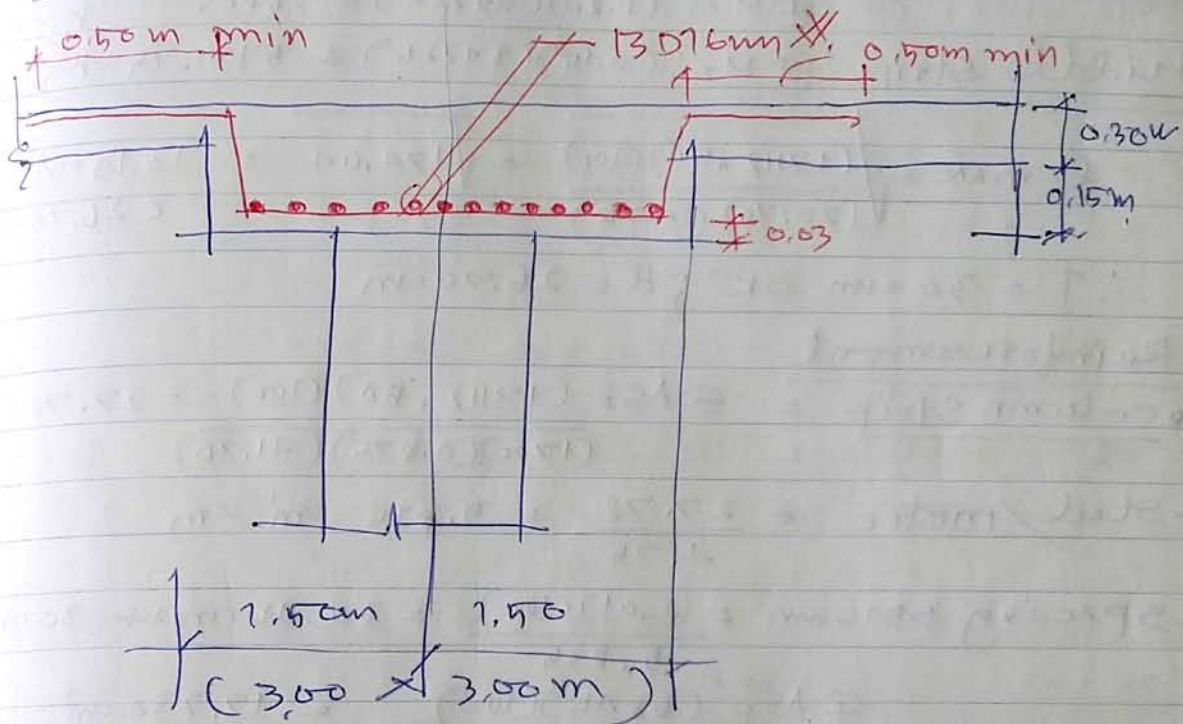 0.50 m min
13 D16mm
0.50m min
0.30
0.15m
0.03
1.50m 1.50
(3.00 × 3.00m)